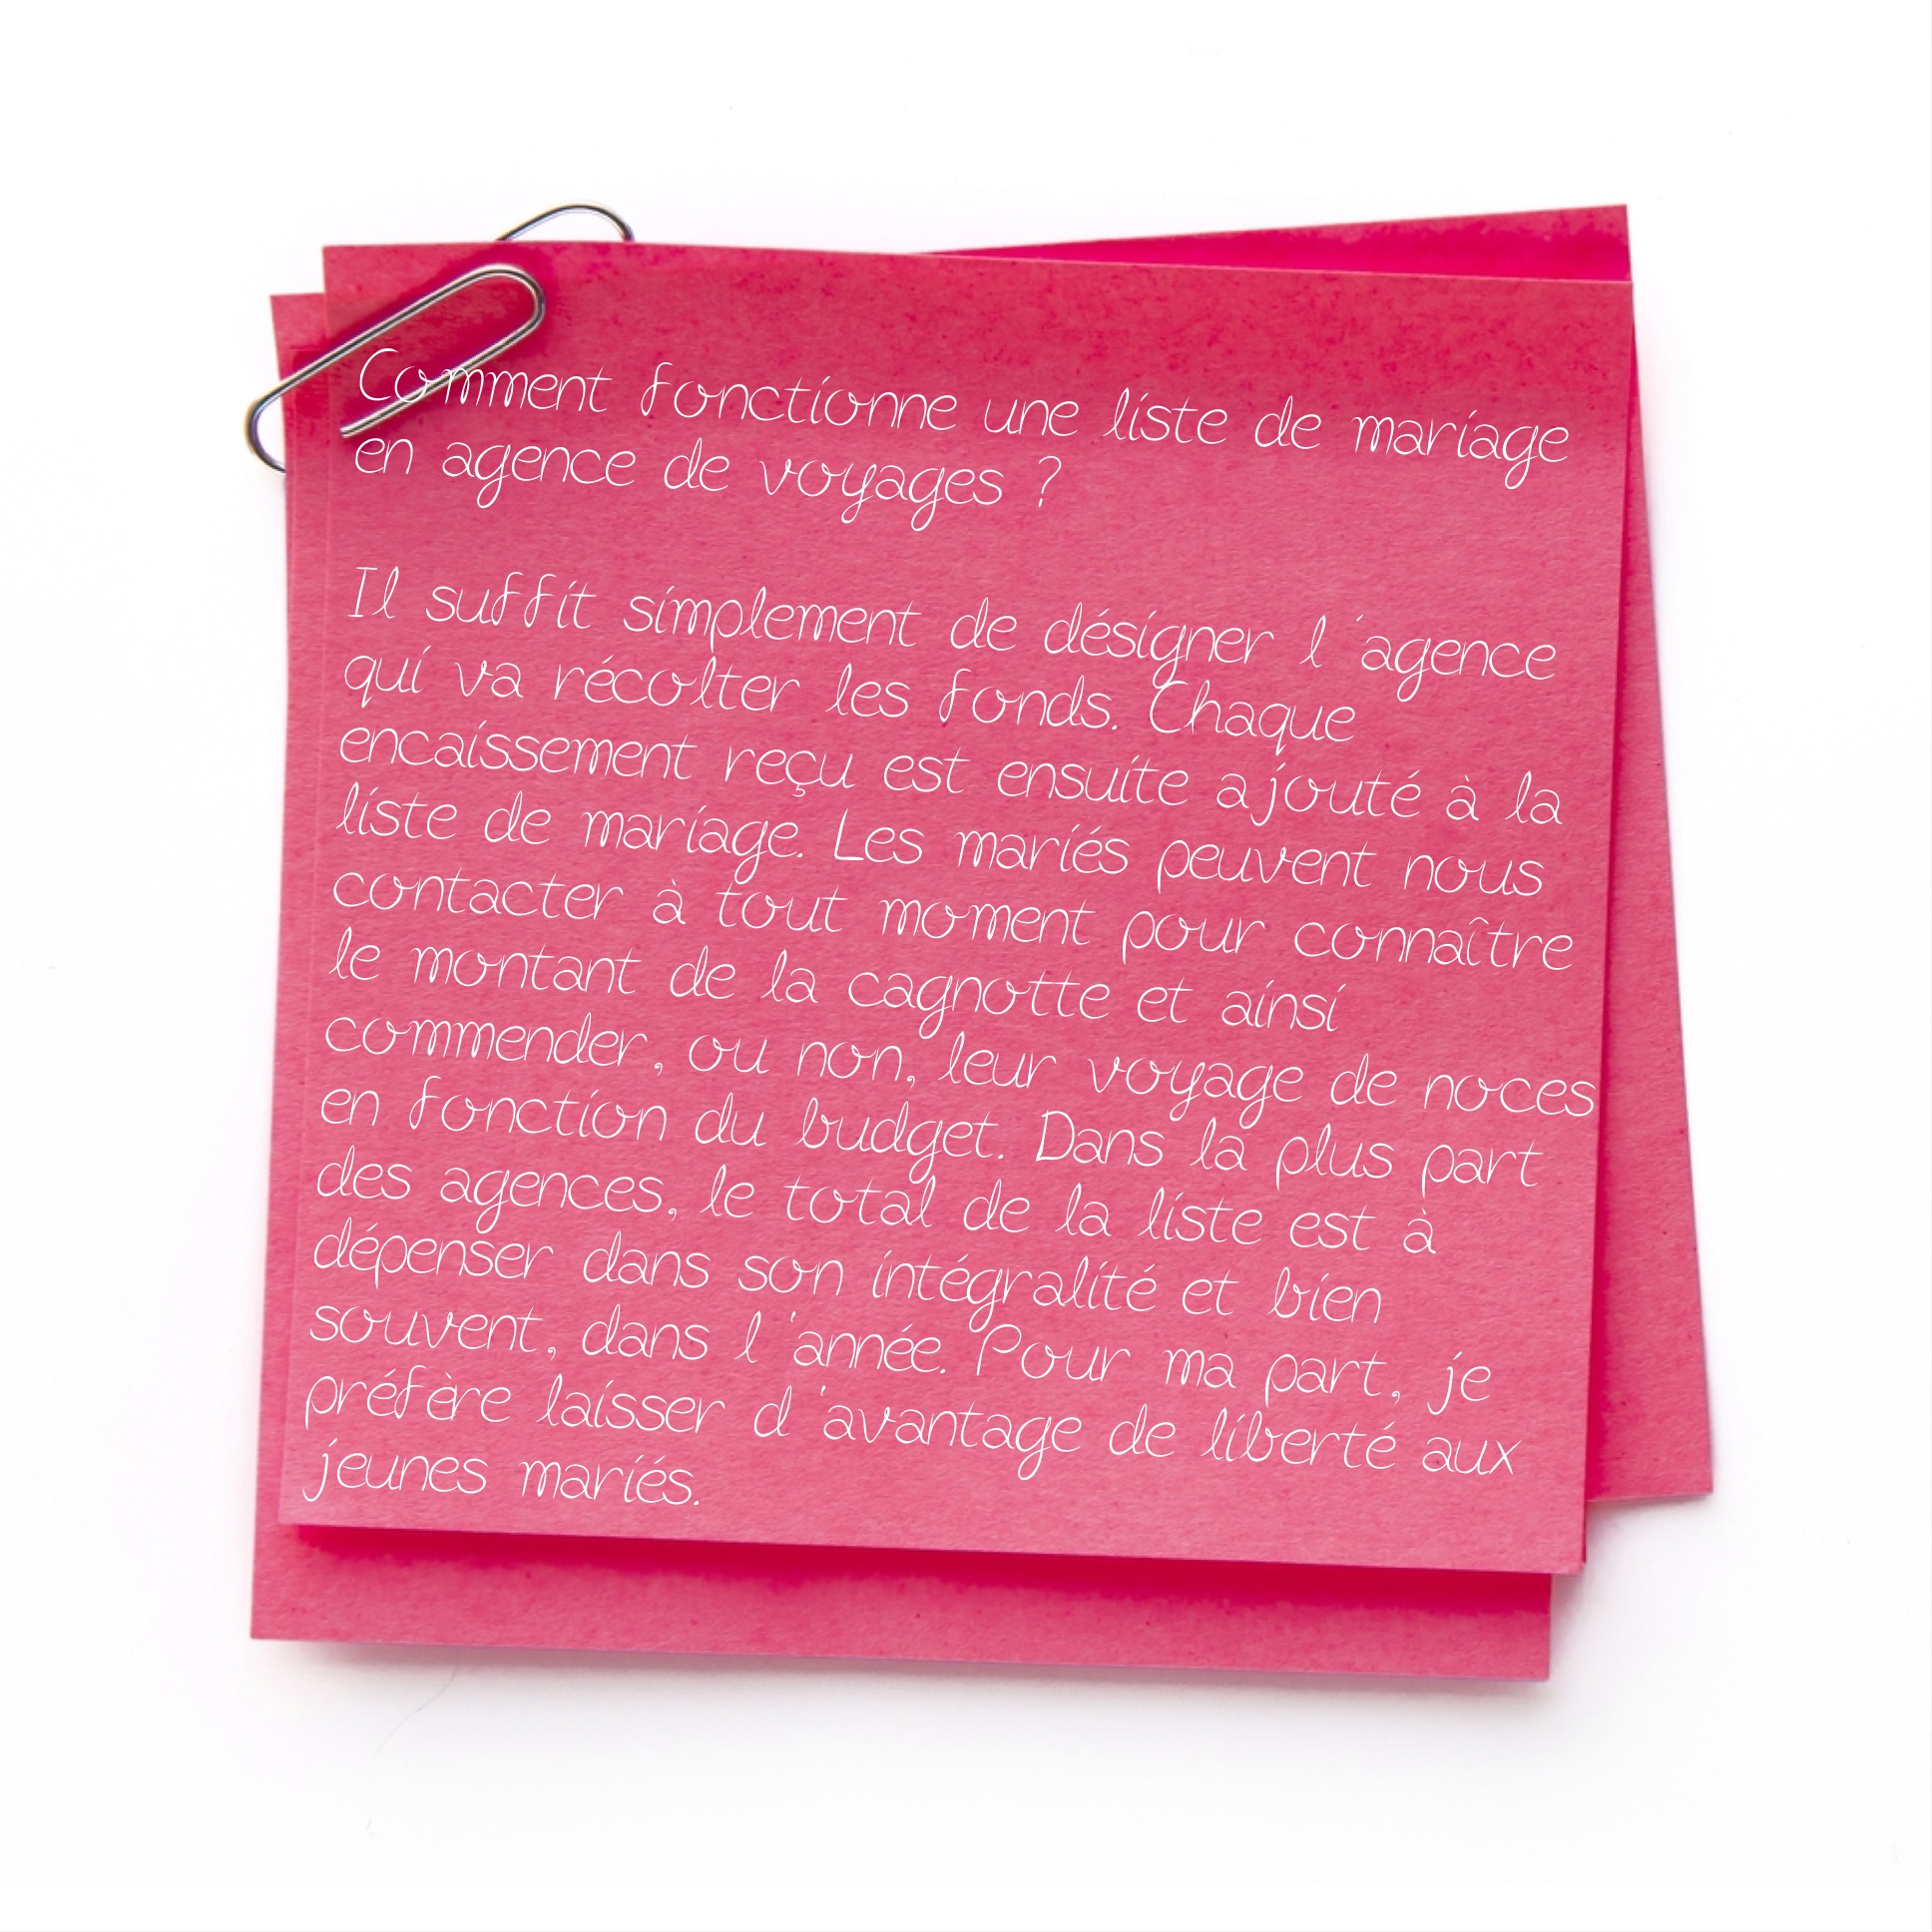 Comment fonctionne une liste de mariage
en agence de voyages ?
Il suffit simplement de désigner l'agence
qui va récolter les fonds. Chaque
encaissement reçu est ensuite ajouté à la
liste de mariage. Les mariés peuvent nous
contacter à tout moment pour connaître
le montant de la cagnotte et ainsi
commender, ou non, leur voyage de noces
en fonction du budget. Dans la plus part
des agences, le total de la liste est à
dépenser dans son intégralité et bien
souvent, dans l'année. Pour ma part, je
préfère laisser d'avantage de liberté aux
jeunes mariés.